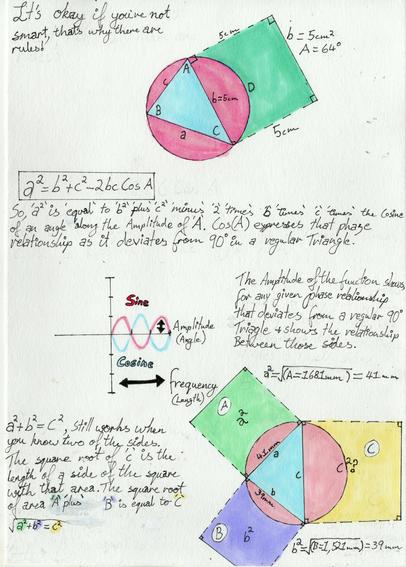 It's okay if you're not
smart, thats why there are
rules!
5cm
b = 5cm²
A = 64°
A
c
b=5cm
D
B
C
a
5cm
a² = b² + c² - 2bc Cos A
So, 'a²' is 'equal' to 'b²' plus 'c²' minus '2' times 'b' times 'c' times' the Cosine
of an angle along the Amplitude of A. Cos(A) expresses that phase
relationship as it deviates from 90° in a regular Triangle.
The Amplitude of the function shows
for any given phase relationship
that deviates from a regular 90°
Triagle + shows the relationship
Between those sides.
Sine
Amplitude
(Angle)
Cosine
frequency
(Length)
a²=√(A=1681mm) = 41mm
a²+b²=C², Still works when
you know two of the sides.
The square root of 'c' is the
length of a side of the square
with that area. The square root
of area 'A' plus 'B' is equal to 'C'
√a²+b² = c²
A
a²
C
41mm
a
c
C²?
b
39mm
B
b²
b²=√(B=1,521mm) = 39mm